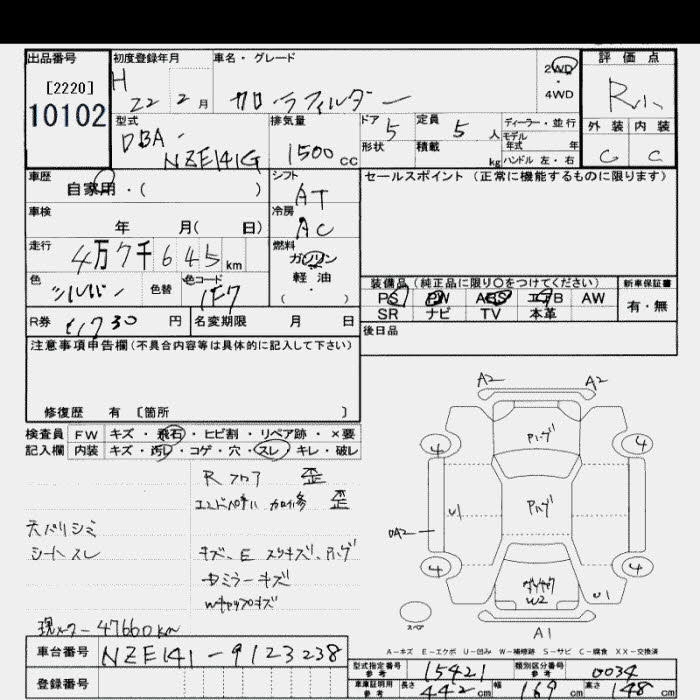 出品番号
[2220]
10102
初度登録年月
H 22 2 月
車名・グレード
カローラフィルダー
2WD
4WD
評価点
R
型式
DBA-
NZE141G
排気量
1500 cc
ドア 5
形状
定員 5 人
積載 kg
ディーラー・並行
モデル
年式 年
ハンドル 左・右
外装 内装
C C
車歴
自家用・( )
シフト
AT
セールスポイント (正常に機能するものに限ります)
車検
年 月( 日)
冷房
AC
走行
4万7千645 km
燃料
ガソリン
軽・油
・
( )
色
シルバー
色替
色コード
1F7
装備品(純正品に限り〇をつけてください)
新車保証書
PS PW ABS エアB AW
SR ナビ TV 本革
有・無
R券 円
名変期限 月 日
後日品
注意事項申告欄(不具合内容等は具体的に記入して下さい)
修復歴 有 〔箇所 〕
検査員 FW キズ・飛石・ヒビ割・リペア跡・×要
記入欄 内装 キズ・汚レ・コゲ・穴・スレ・キレ・破レ
Rフロア 歪
歪
天バリシミ
シートスレ
キズ、E スリキズ、ハゲ
ミラーキズ
キズ
現メーター47660km
A2 A2
4 4
U1
4 4
W2
U1
A1
スペア
A-キズ E-エクボ U-凹み W-補修跡 S-サビ C-腐食 XX-交換済
車台番号 NZE141-9123238
登録番号
型式指定番号
参考
15421
類別区分番号
参考
0034
車庫証明用
参考
長さ 442 cm 幅 169 cm 高さ 148 cm